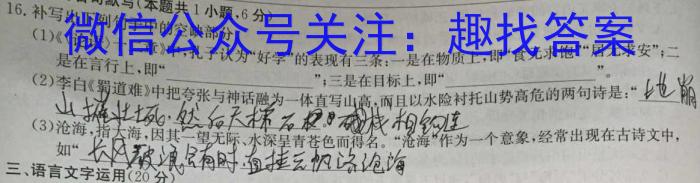 名句默写(本题共1小题,6分)
16.补写出下列句子中的空缺部分
微信公众号关注：趣找答案
(1)《 》中,孔子认为“好学”的表现有三条:一是在物质上,即“食无求饱 居无求安”;二
是在言行上,即“ ”;三是在目标上,即“ ”。
(2)李白《蜀道难》中把夸张与神话融为一体直写山高,而且以水险衬托山势高危的两句诗是:“地崩
山摧壮士死 然后天梯石栈相钩连
(3)沧海,指大海,因其一望无际、水深呈青苍色而得名。“沧海”作为一个意象,经常出现在古诗文中,
如“长风破浪会有时 直挂云帆济沧海
三、语言文字运用(20分)